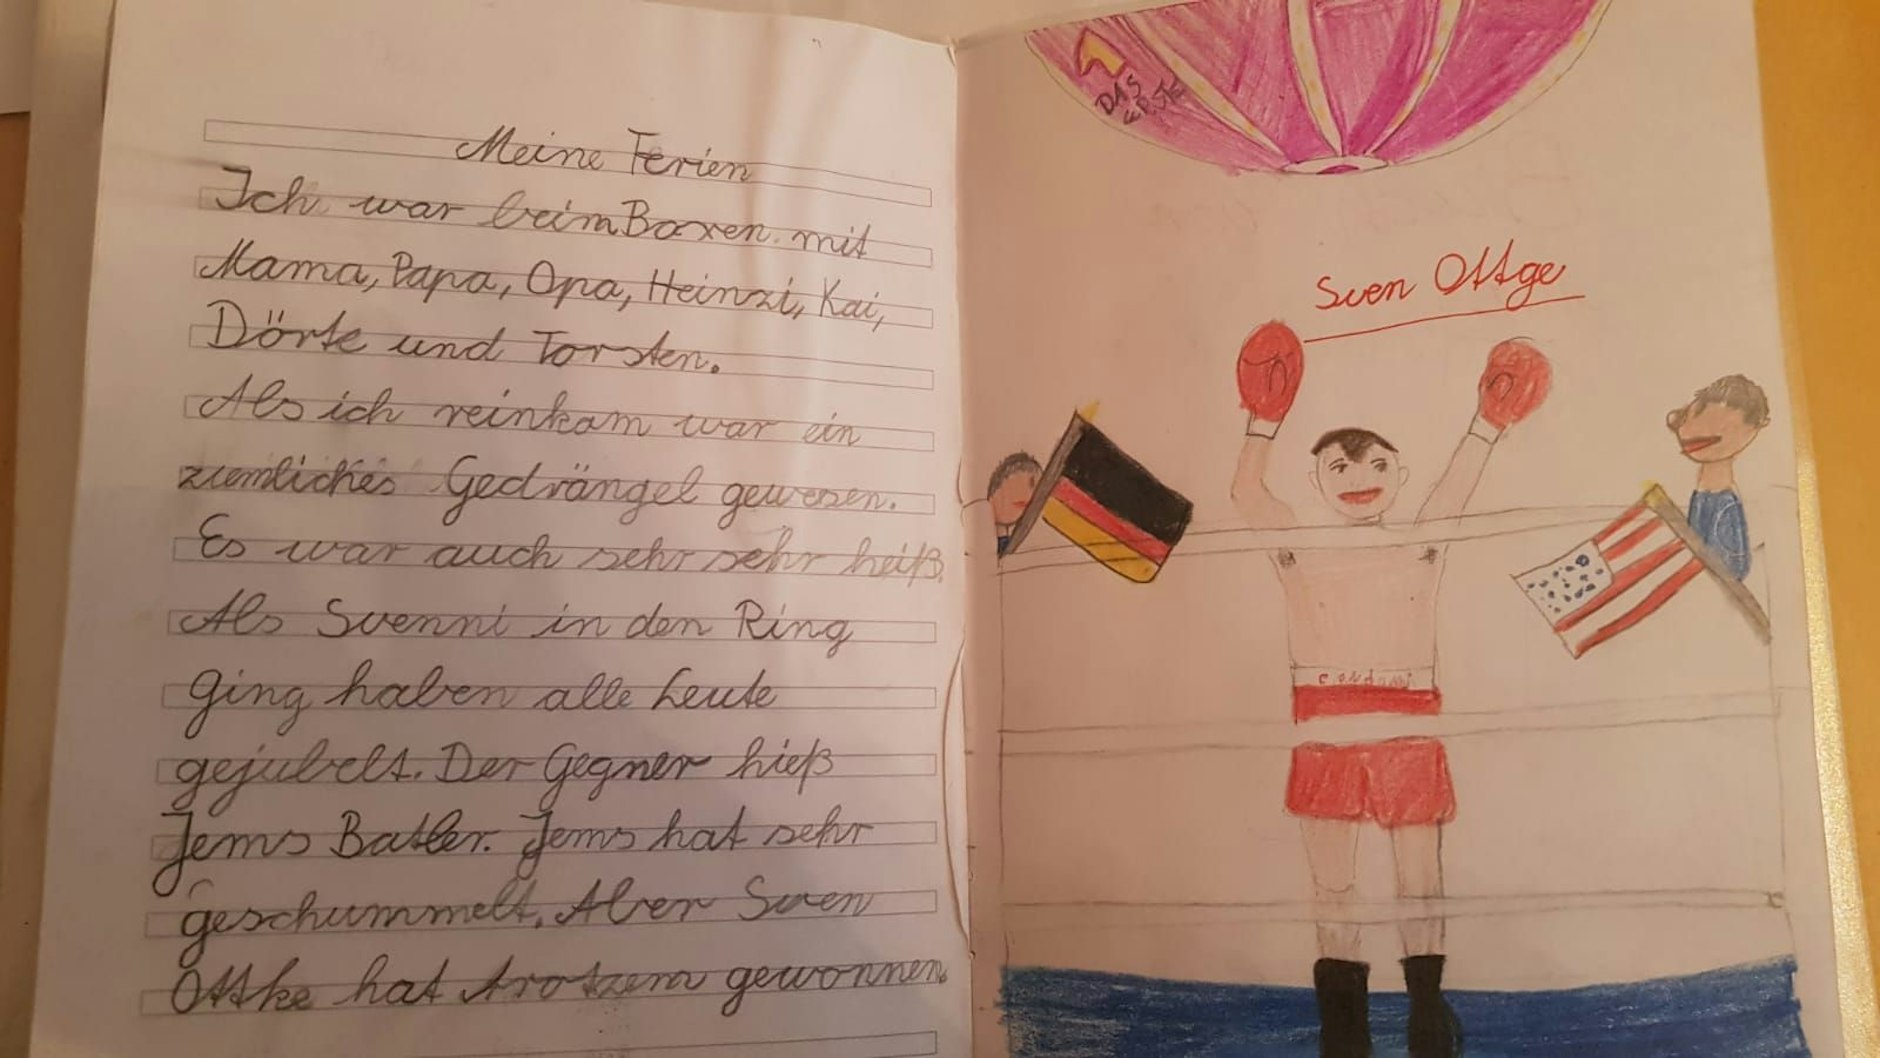 Meine Ferien
Ich war beim Boxen mit
Mama, Papa, Opa, Heinzi, Kai,
Dörte und Torsten.
Als ich reinkam war ein
ziemliches Gedrängel gewesen.
Es war auch sehr sehr heiß.
Als Svenni in den Ring
ging haben alle Leute
gejubelt. Der Gegner hieß
Jems Batler. Jems hat sehr
geschummelt. Aber Sven
Ottke hat trotzem gewonnen.
DAS
ERSTE
Sven Ottge